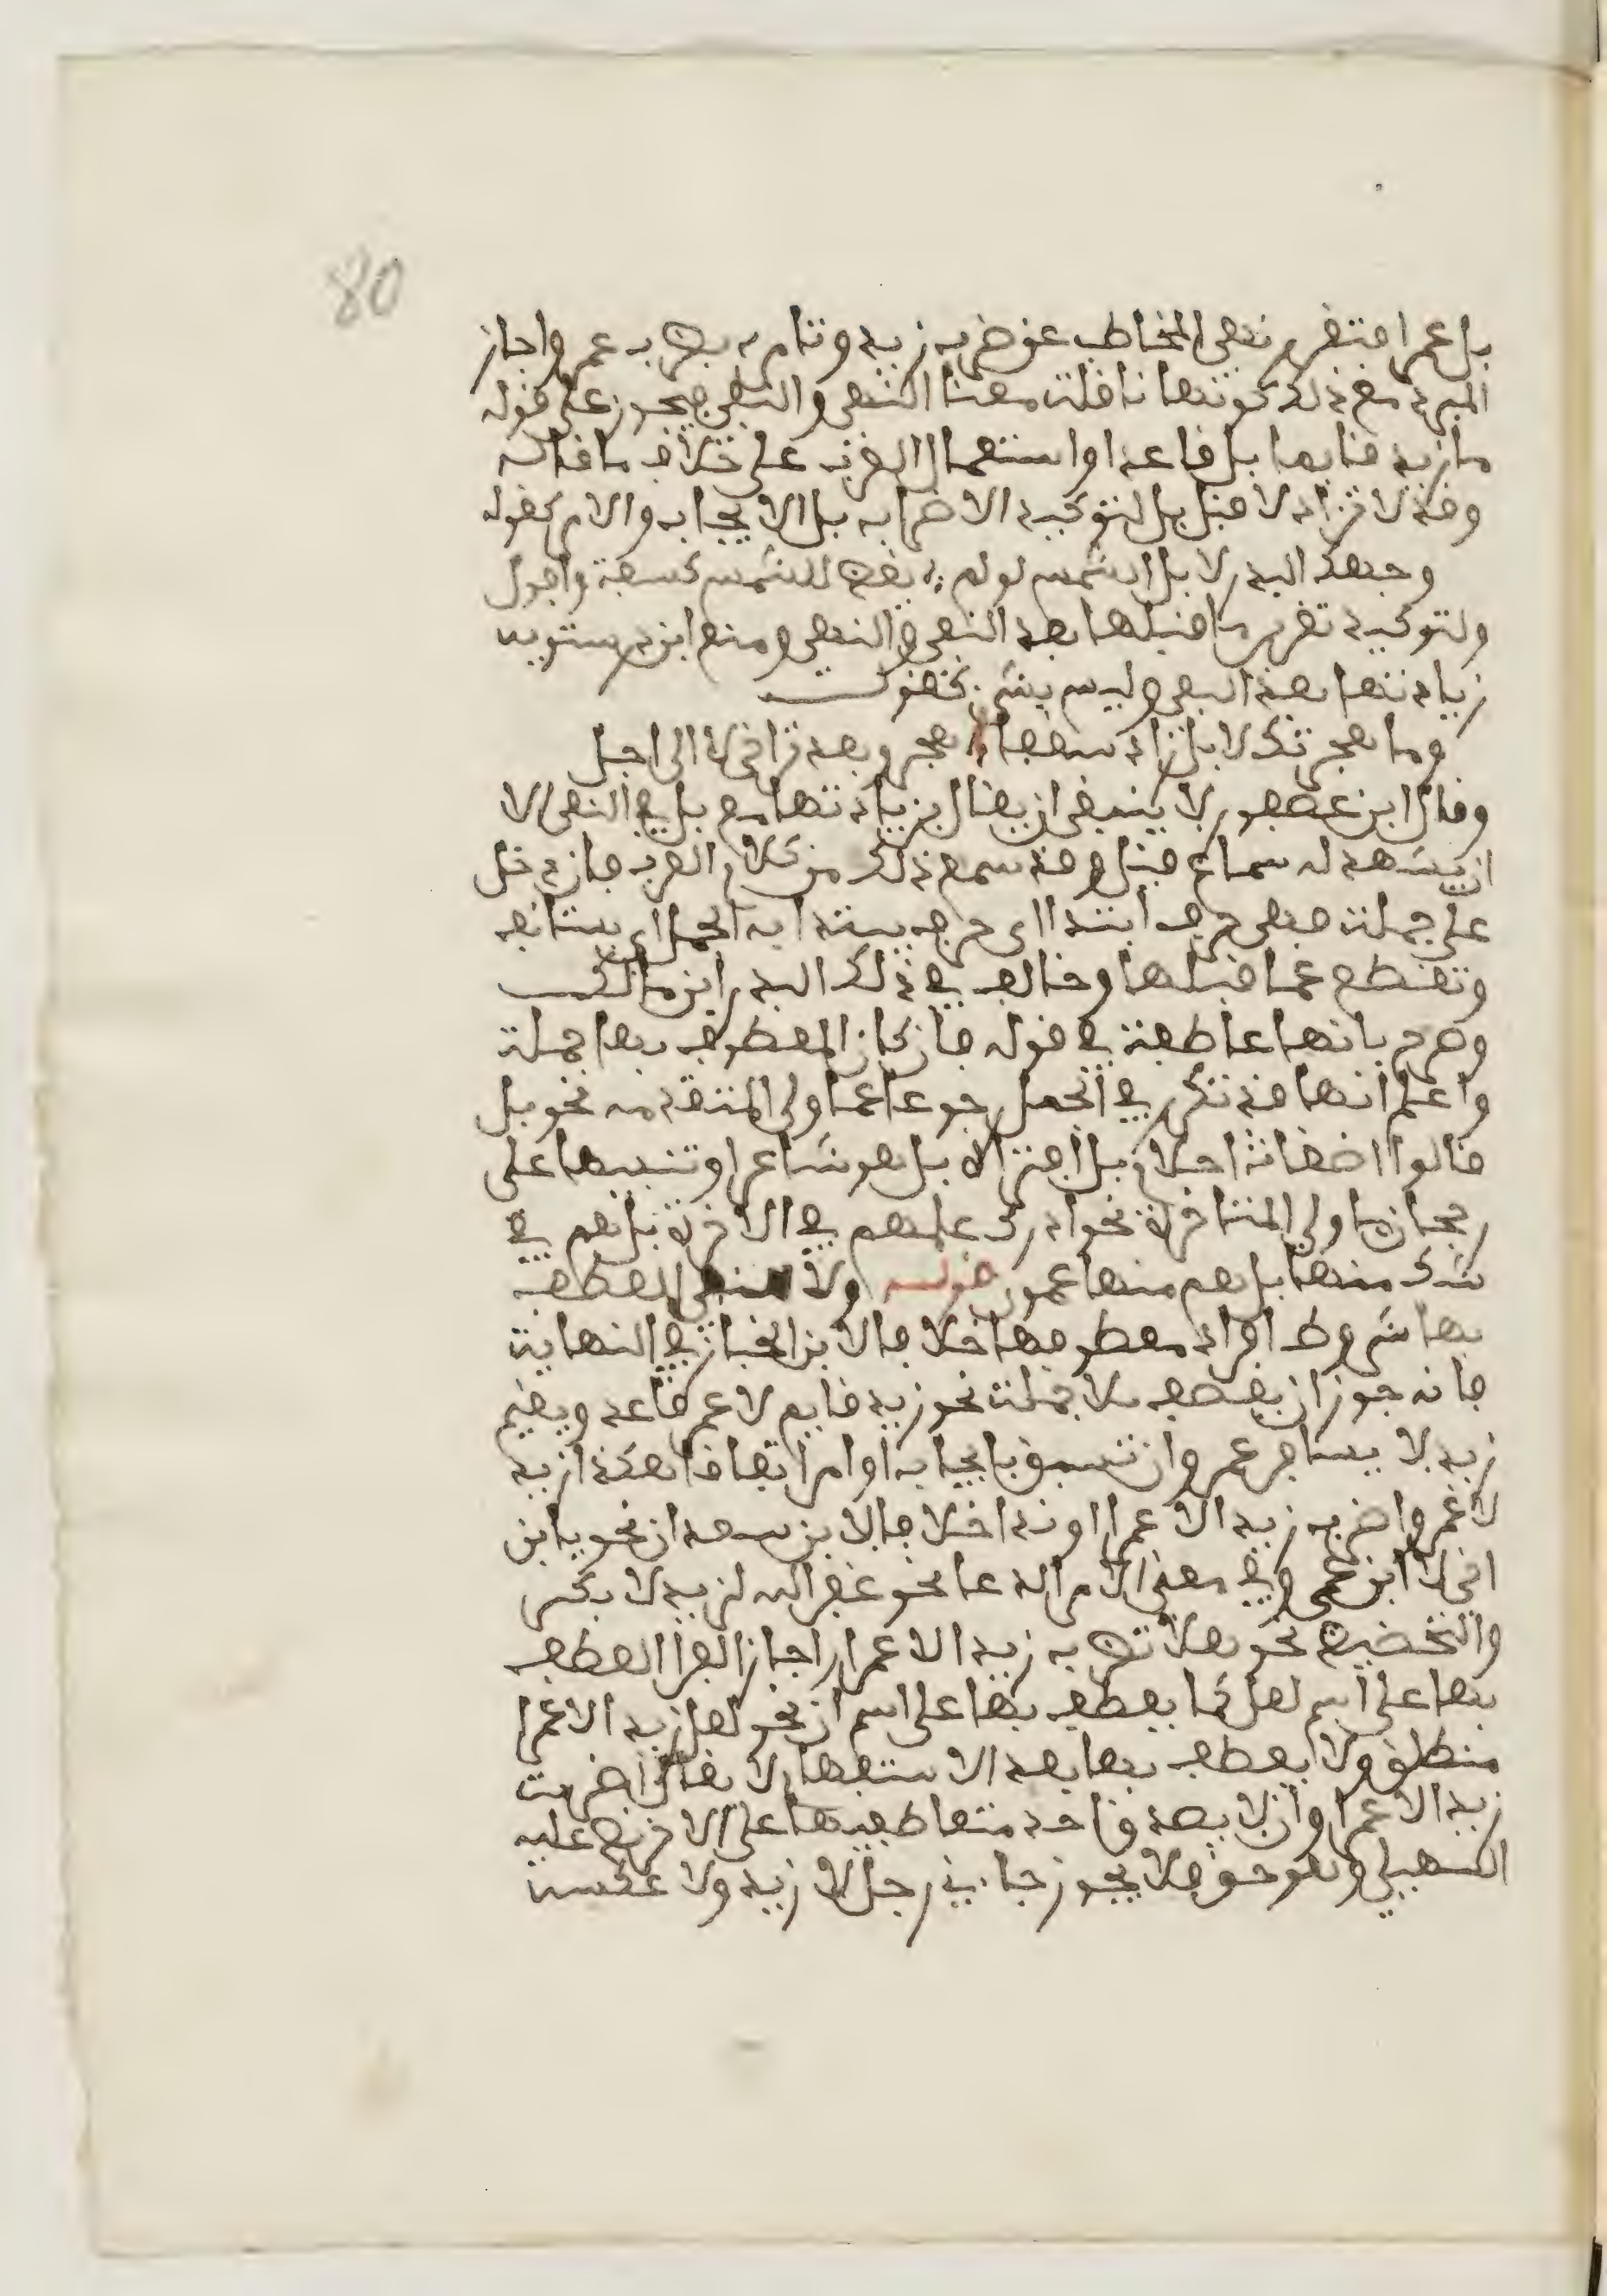 80
بل عمرا فتقرر نهي المخاطب عن ضرب زيد وتامره بضرب عمرو واجاز
المبرد مع ذلك كونها ناقلة معنا النهي والنفي فيجوز على قوله
ما زيد قايما بل قاعدا واستعمال العرب على خلاف ما قاله
وقد لا تزاد لا قبل بل لتوكيد الاضراب بل الايجاب والامر كقوله
وجهك البدر لا بل الشمس لو لم ؛ يقض للشمس كسفة وافول
ولتوكيد تقرير ما قبلها بعد النهي والنفي ومنع ابن درستويه
زيادتها بعد النفي وليس بشيء كقوله
وما هجرتك لا بل زادني شغفا ؛ هجر وبعد تراخى لا الى اجل
وقال ابن عصفور لا ينبغي ان يقال بزيادتها مع بل في النفي الا
ان يشهد له سماع قيل وقد سمع ذلك من كلام العرب فان دخل
على جملة فهي حرف ابتدا اي حرف يبتدا به الجمل اي يستانف
وتقطع عما قبلها وخالف في ذلك البدر ابن مالك
وصرح بانها عاطفة في قوله فان كان المعطوف بها جملة
واعلم انها قد تكرر في الجمل رجوعا عما ولي المتقدمه نحو بل
قالوا اضغاث احلام بل افتراه بل هو شاعر او تنبيها على
رجحان ما ولي المتاخرة نحو ادرك علمهم في الاخرة بل هم في
شك منها بل هم منها عمون قوله ولا للعطف
بها شروط افراد معطوفها خلافا لابن الخباز في النهاية
فانه جوز ان يعطف بلا جملة نحو زيد قايم لا عمرو قاعد ويقيم
زيد لا يسافر عمرو وان تسبق بايجاب او امر اتفاقا هكذا زيد
لا عمرو واضرب زيدا لا عمرا او ندا خلافا لابن سعدان نحو يا ابن
اخي لا ابن عمي وفي معنى الامر الدعا نحو غفر الله لزيد لا بكر
والتحضيض نحو هلا تضرب زيدا لا عمرا واجاز الفرا العطف
بها على اسم لعل كما يعطف بها على اسم ان نحو لعل زيدا لا عمرا
منطلق ولا يعطف بها بعد الاستفهام لا يقال اضربت
زيدا لا عمرا وان لا يصدق احد متعاطفيها على الاخر نص عليه
السهيلي وهو حق فلا يجوز جاءني رجل لا زيد ولا عكسه